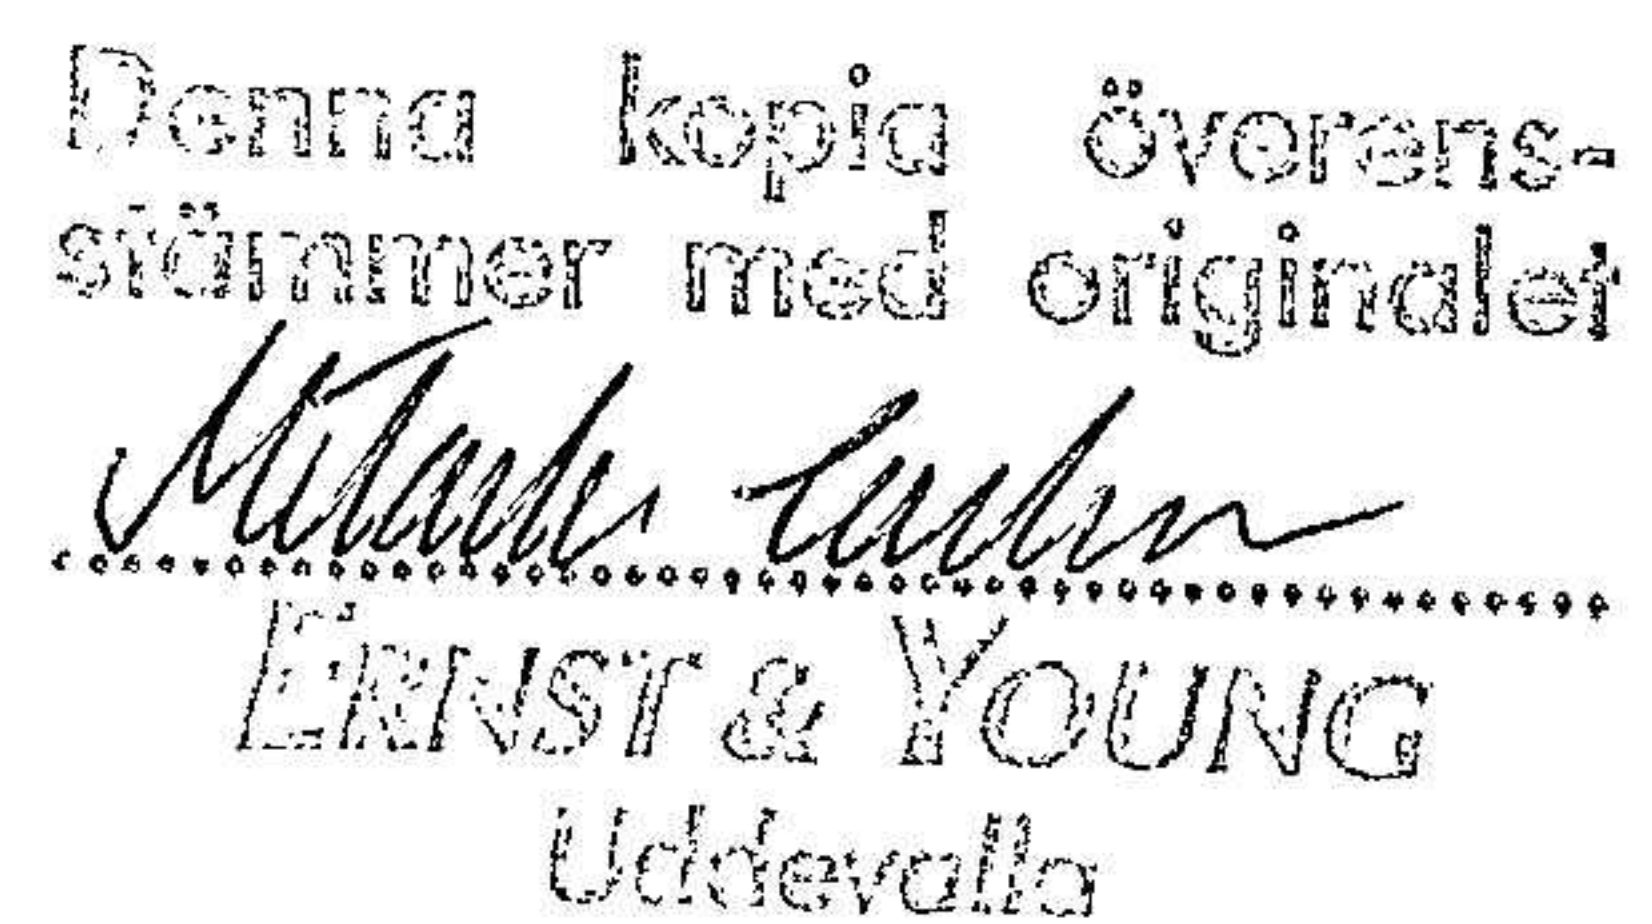 Denna kopia överens-
stämmer med originalet
ERNST & YOUNG
Uddevalla